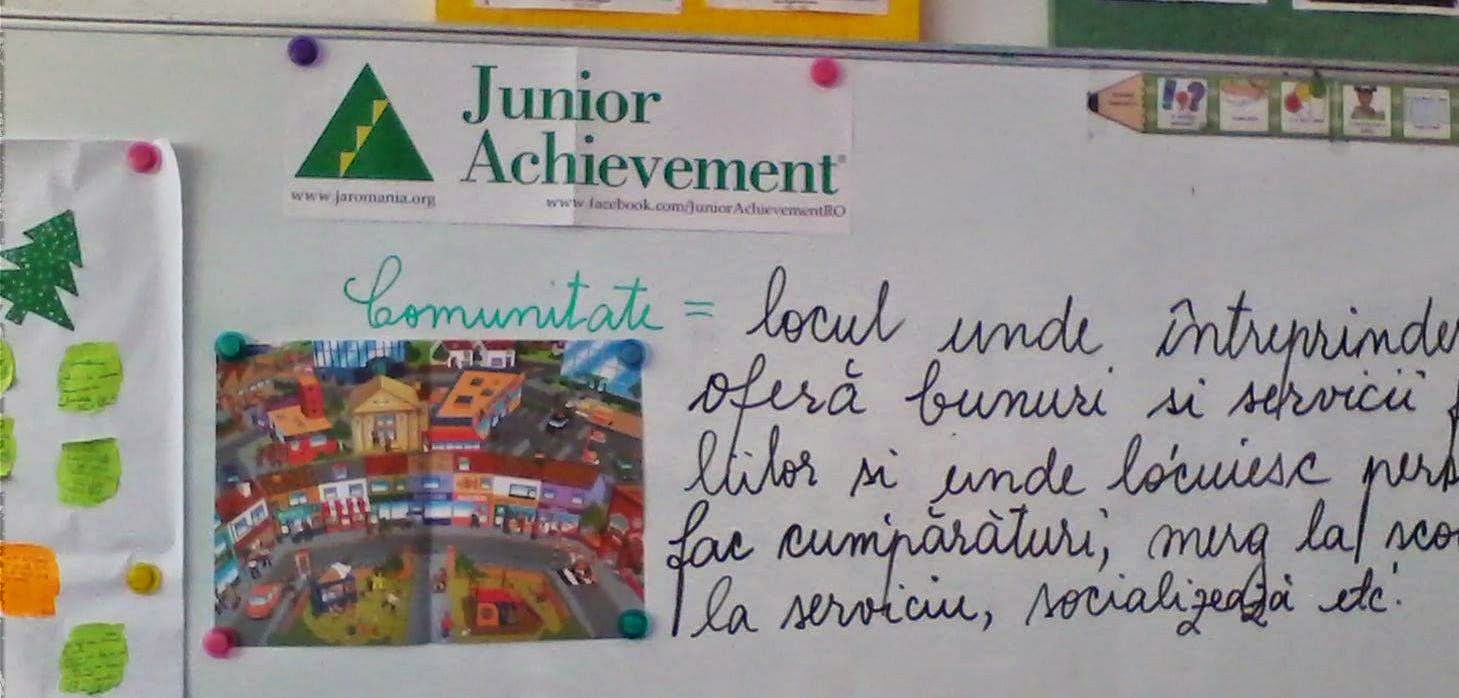 Junior
Achievement
www.jaromania.org
www.facebook.com/JuniorAchievementRO
Comunitate = locul unde întreprinder
oferă bunuri si servicii
ltilor si unde locuiesc pers
fac cumpărături, merg la sco
la serviciu, socializează etc.